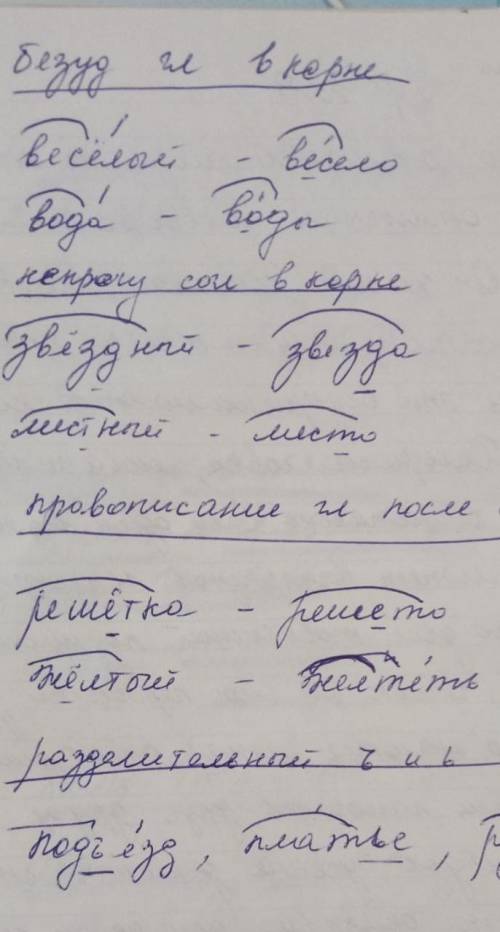 безуд гл в корне
весёлый - весело
вода - воды
непроизн сог в корне
звёздный - звезда
местный - место
правописание гл после
решётка - решето
жёлтый - желтеть
разделительный ъ и ь
подъезд, платье,